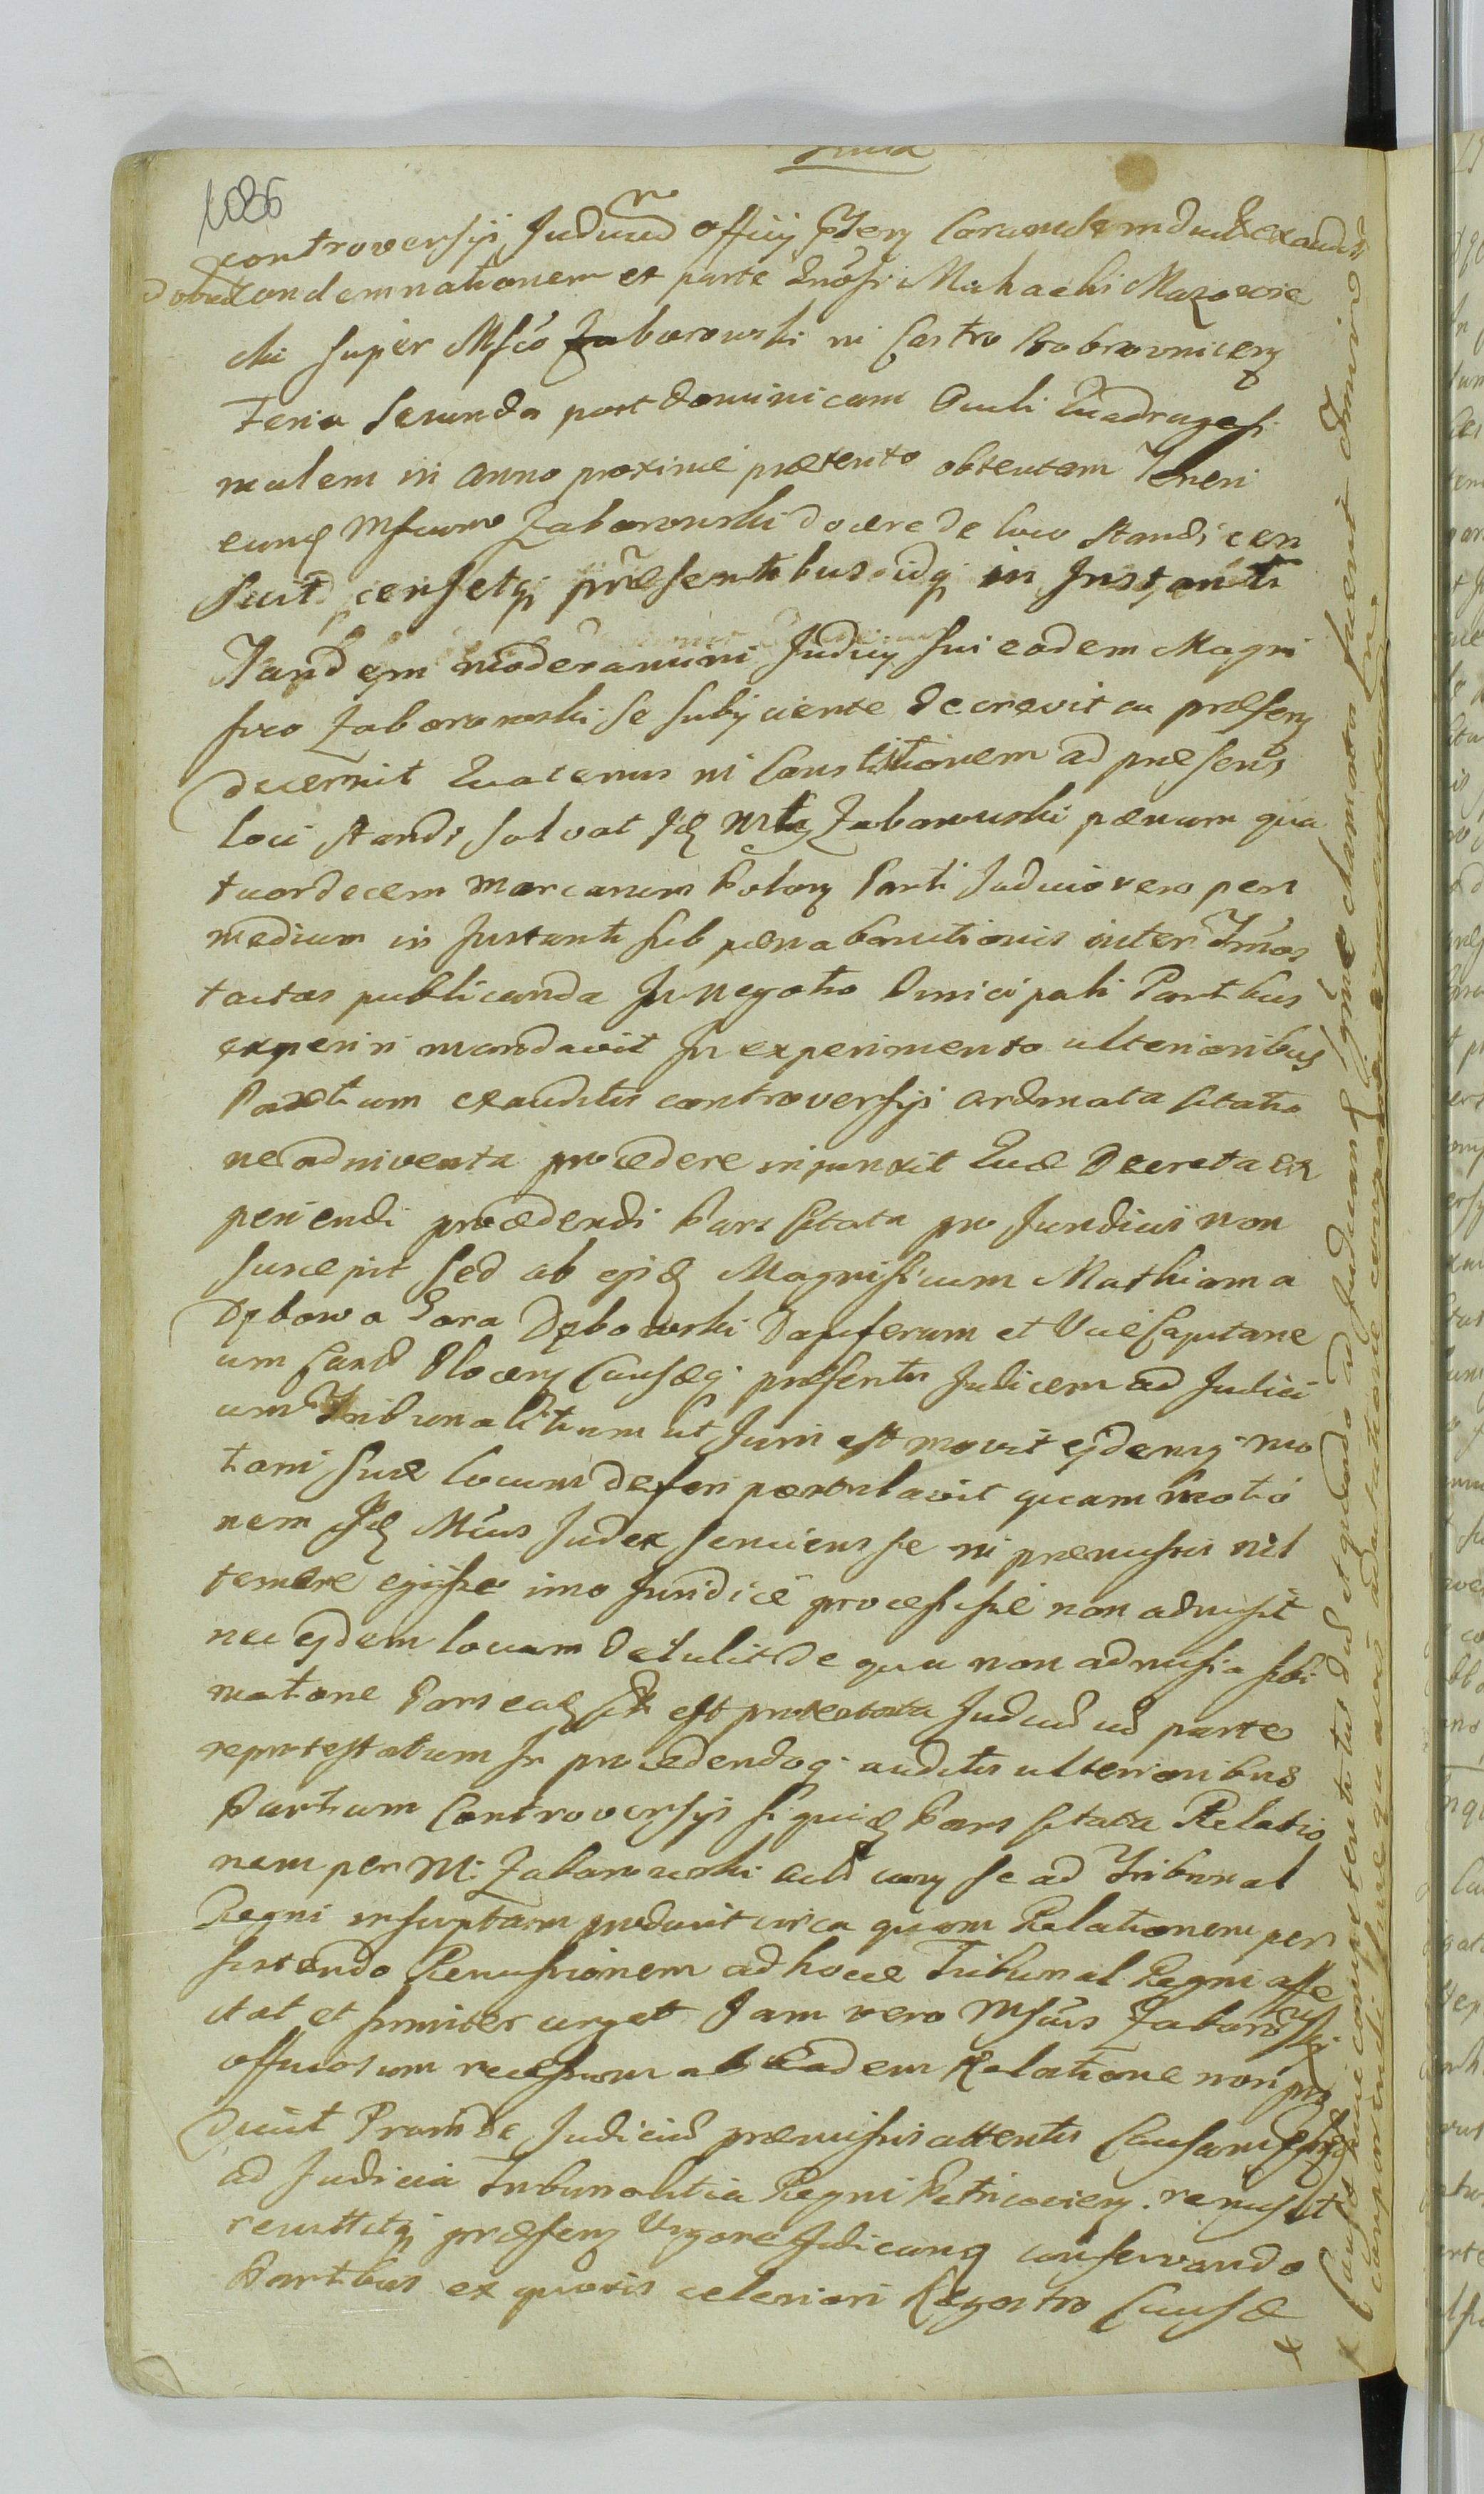 1086
controversijs Judiciũ officij pñteny Coramdem ducte exauditis
condemnationem ex parte Gnõsi Michaelis Mazowie
cki super Mfco Zaborowski in Castro Bobrovniceny
Feria Secunda post Dominicam Oculi Quadragesi
malem in anno proxime præterito obtentam Teneri
eunq Mficum Zaborowski docere de loco Standi cen
suit censetq præsentibus idq in Instanti
Tandem moderamini Judicij sui eodem Magni
fico Zaborowski se subijciente decrevit ac præseny
decernit Quatenus ni Constitutionem ad præsens
loci standi solvat Id Mfcg Zaborowski pænam qua
tuordecem Marcarum Polony Parti Judicio vero per
medium in Instanti sub pæna banitionis inter Imas
tactas publicanda In negotio Principali Partibus
experiri mandavit In experimento ulterioribus
Partium exauditis controversijs ordinata Citatio
ne adinventa procedere injunxit Quæ Decreta ex
periendi procedendi Pars Citata pro Juridicis non
suscepit sed ab ijsd Magnificum Mathiam a
Dębowa Gora Dębowski Dapiferum et ViceCapitane
um Castr Ploceny Causæq præsentis Judicem ad Judici
um Tribunalitium ut Juris est movit ejdemq mo
tioni suæ locum deferri postulavit quam motio
nem Id Mfcus Judex sentiens se in præmissis nil
temere egisse imo Juridicè processisse non admisit
nec ejdem locum detulit De qua non admissa sibi
motione Pars ead Cit est protestata Judiciũ ud parte
reprotestatum In procedendoq auditis ulterioribus
Partium Controversijs siquid Pars Citata Relatio
nem per M. Zaborowski se ad Tribunal
Regni inscriptam produxit circa quam Relationem per
sistendo Remissionem ad hocce Tribunal Regni affe
ctat et firmiter urget Jam vero Mficus Zaborowski
officiosum recessum ab Eadem Relatione non pro
duxit Proinde Judiciũ præmissis attentis Causam
ad Judicia Tribunalitia Regni Petricovieny remisit
remittitq præseny Vigore Judicanq conservando
Partibus ex quovis celeriori Regestro Causæ
x
x Causa huic competenti tũs dũd et quando ad Judicand igne clamatæ fuerint
comparendi sine quavis adcitatione